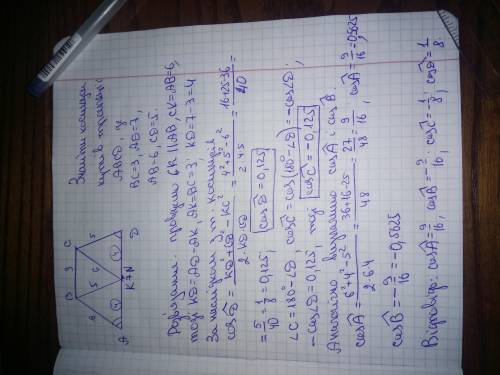 Знайти косинуси
кутів трапеції
ABCD, де
BC=3, AD=7,
AB=6, CD=5.
B 3 C
6 5 6 5
4 4
A K N D
Розв'язання: проведем CK || AB, CK=AB=6,
тоді KD=AD-AK, AK=BC=3, KD=7-3=4
За наслідком з т. косинусів
cosD = KD²+CD²-KC² / 2·KD·CD = 4²+5²-6² / 2·4·5 = 16+25-36 / 40 =
= 5/40 = 1/8 = 0,125; cosD = 0,125
∠C = 180-∠D, cosC = cos(180-∠D) = -cos∠D.
-cos∠D = 0,125, тоді cosC = -0,125
Аналогічно визначимо cosA і cosB
cosA = 6²+4²-5² / 2·6·4 = 36+16-25 / 48 = 27/48 = 9/16, cosA = 9/16 = 0,5625
cosB = -9/16 = -0,5625
Відповідь: cosA = 9/16, cosB = -9/16, cosC = -1/8, cosD = 1/8.